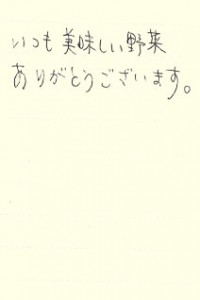 いつも美味しい野菜
ありがとうございます。